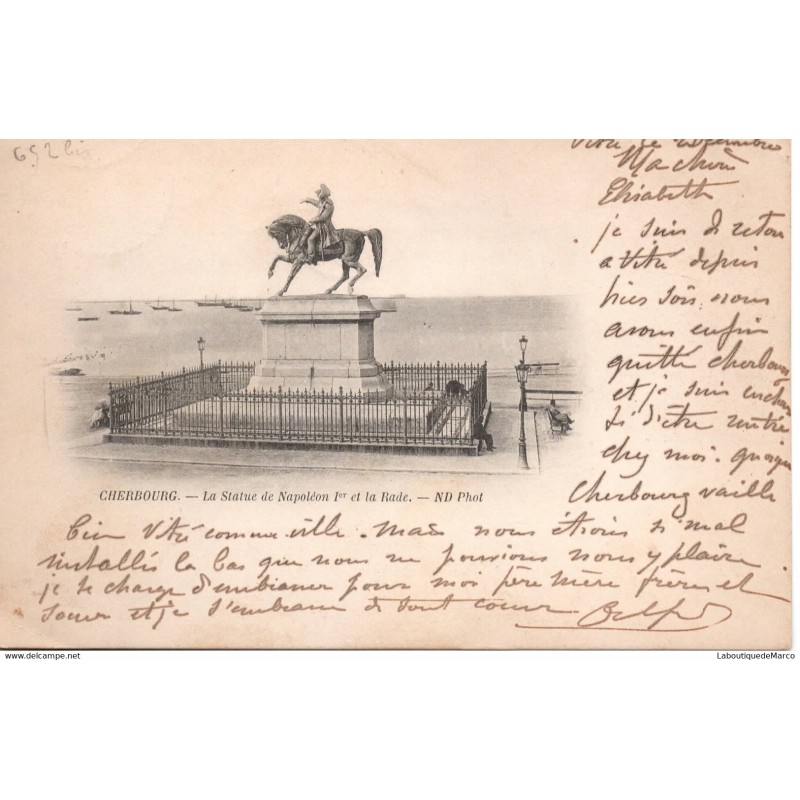 652 bis
Vitré le
Ma chère
Elisabeth
je suis de retour
a Vitré depuis
hier soir nous
avons enfin
quitté cherbourg
et je suis enchan
si d'être rentrée
chez moi. quoique
Cherbourg vaille
CHERBOURG. — La Statue de Napoléon Ier et la Rade. — ND Phot
bien Vitré comme ville. mais nous étions si mal
installés la bas que nous ne pouvions nous y plaire
je te charge d'embrasser pour moi père mère frères et
soeur et je t'embrasse de tout coeur
www.delcampe.net
LaboutiquedeMarco